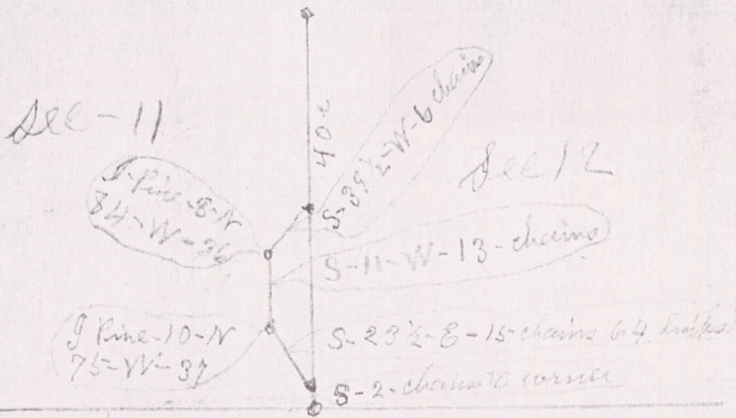 Sec-11
40-c
S-39½-W-6 chains
Sec 12
J-Pine-8-N
84-W-36
S-11-W-13-chains
J Pine-10-N
75-W-37
S-23½-E-15-chains 64 links
S-2-chains to corner